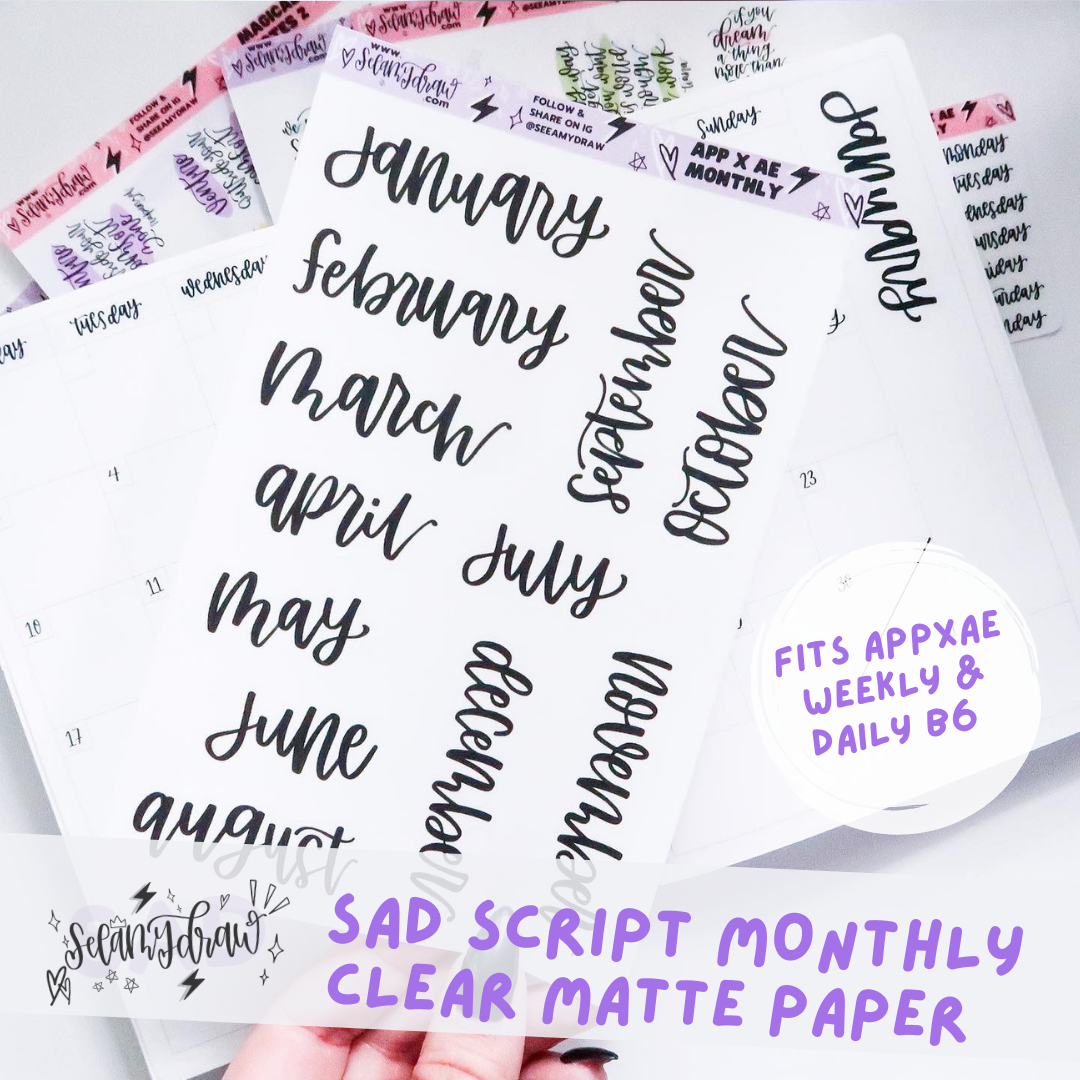 MAGICAL
WWW.
Seeamydraw
@SEEAMYDRAW
if you
dream
a thing
more than
WWW.
Seeamydraw
.com
FOLLOW &
SHARE ON IG
@SEEAMYDRAW
APP X AE
MONTHLY
FOLLOW &
SHARE ON IG
@SEEAMYDRAW
WWW.
Seeamydraw
.com
sunday
january
monday
tuesday
tuesday
wednesday
january
february
march
april
may
june
july
august
september
october
november
december
4
10
11
17
23
30
FITS APPXAE
WEEKLY &
DAILY B6
seeamydraw
SAD SCRIPT MONTHLY
CLEAR MATTE PAPER